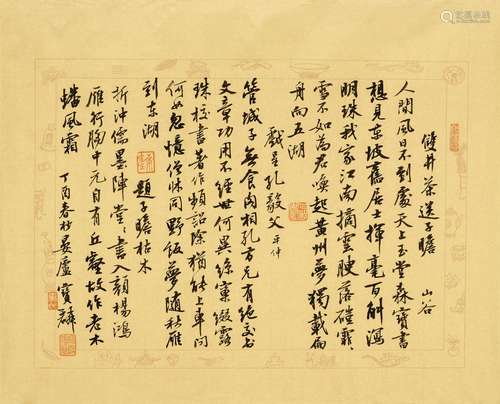 雙井茶送子瞻
山谷
人間風日不到處天上玉堂森寶書
想見東坡舊居士揮毫百斛瀉
明珠我家江南摘雲腴落磑霏、
雪不如為君喚起黃州夢獨載扁
舟向五湖
戲呈孔毅父平仲
管城子無食肉相孔方兄有絕交書
文章功用不經世何異絲窠綴露
珠校書著作頻詔除猶能上車問
何如忽憶僧床同野飯夢隨秋雁
到東湖
題子瞻枯木
折沖儒墨陣堂、書入顏楊鴻
雁行胸中元自有丘壑故作老木
蟠風霜
丁酉春杪晏廬寶麟